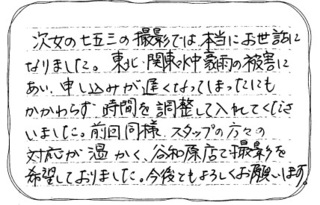 次女の七五三の撮影では本当にお世話に
なりました。東北・関東の豪雨の被害に
あい、申し込みが遅くなってしまったにも
かかわらず、時間を調整して入れてくださ
いました。前回同様、スタッフの方々の
対応が温かく、谷和原店で撮影を
希望しておりました。今後ともよろしくお願いします。